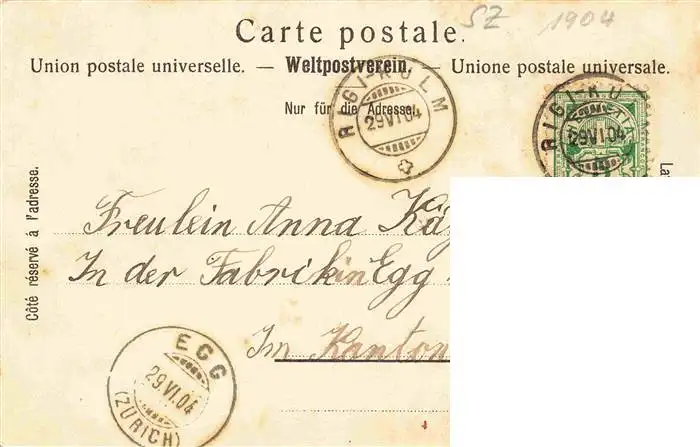 SZ 1904
Carte postale.
Union postale universelle. — Weltpostverein. — Unione postale universale.
Nur für die Adresse.
RIGI-KULM
29 VI 04
RIGI-KU
29 VI 04
Côté réservé à l'adresse.
Freulein Anna
In der Fabrik in Egg
Im Kanton
EGG
29. VI. 04
(ZÜRICH)